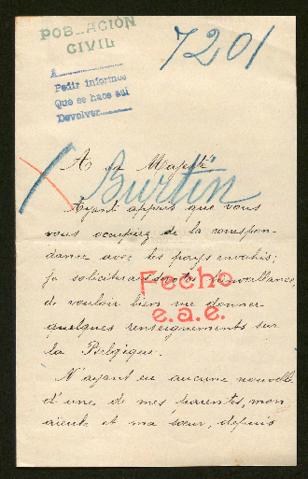 POBLACIÓN
CIVIL
7201
A
Pedir informes
Que se hace así
Devolver
A sa Majesté
Burtin
Ayant appris que vous
vous occupiez de la correspon-
dance avec les pays envahis;
je solliciterais de votre bienveillance,
de vouloir bien me donner
Fecho
e.a.e.
quelques renseignements sur
la Belgique.
N'ayant eu aucune nouvelle
d'une de mes parentes, mon
aieule et ma sœur, depuis